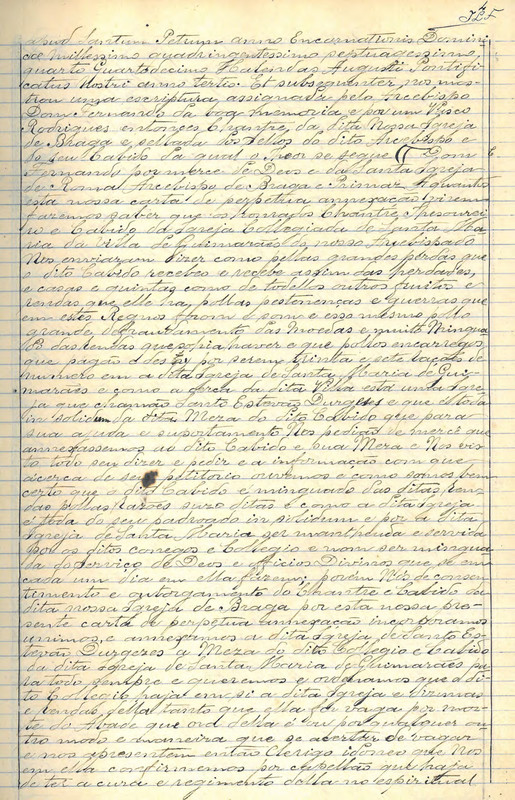 apud Santum Petrum anno Encarnationis Domini-
cae Millessimo quadringentessimo septuagessimo
quarto Quartodecimo Kalendas Augusti Pontifi-
catus Nostri anno tertio. Et subsequenter nos mos-
trou uma escriptura assignada pelo Arcebispo
Dom Fernando da boa memoria e por um Vasco
Rodrigues entonces Chantre da dita Nossa Igreja
de Braga e sellada dos Sellos do dito Arcebispo e
do seu Cabido da qual o theor se segue Dom
Fernando por merce de Deos e da Santa Igreja
de Roma Arcebispo de Braga e Primaz A quantos
esta nossa carta de perpetua annexação virem
fazemos saber que os honrados Chantre Thesourei-
ro e Cabido da Igreja Collegiada de Santa Ma-
ria da Villa de Guimarães do nosso Arcebispado
Nos enviaram dizer como pellas grandes perdas que
o dito Cabido recebeo e recebe assim das herdades,
e casas e quintas como de todollos outros fruitos e
rendas que elle ha, pollas pestenenças e guerras que
em estes Regnos foram e som e esso mesmo pollo
grande mudamento das Moedas e muito Mingua-
das rendas que soyia haver e que pollos encarregos
que pagão desfez por serem trinta e sete rações de
numero em a dita Igreja de Santa Maria de Gui-
marães e como a cerca da dita Villa está uma Igre-
ja que chamão Santo Estevão Durgeses e que é toda
in solidum da dita Meza do dito Cabido que para
sua ajuda e suportamento Nos pedião de mercê que
annexassemos ao dito Cabido e sua Meza e Nos vis-
to todo seu dizer e pedir e a informação com que
acerca de seu petitorio ouvemos e como somos bem
certo que o dito Cabido é minguado das ditas ren-
das pollas razões suso ditas e como a dita Igreja
é toda do seu padroado in solidum e por a dita
Igreja de Santa Maria ser mantheuda e servida
por os ditos conegos e Collegio e nom ser mingua-
da do serviço de Deos e officios Divinos que se em
cada um dia em ella fazem; porém Nós de consen-
timento e outorgamento do Chantre e Cabido da
dita nossa Igreja de Braga por esta nossa pre-
sente carta de perpetua annexação incorporamos
unimos, e annexamos a dita Igreja de Santo Es-
tevão Durgezes a Meza do dito Collegio e Cabido
da dita Igreja de Santa Maria de Guimarães pa-
ra todo sempre e queremos e ordenamos que o di-
to Collegio haja em si a dita Igreja e dizimas
e rendas della tanto que ella for vaga por mor-
te do Abade que ora della é ou por qualquer ou-
tro modo e maneira que se acertar de vagar
e nos apresentem então Clerigo idoneo que Nos
em ella confirmemos por capellão que haja
de ter a cura e regimento della no espiritual